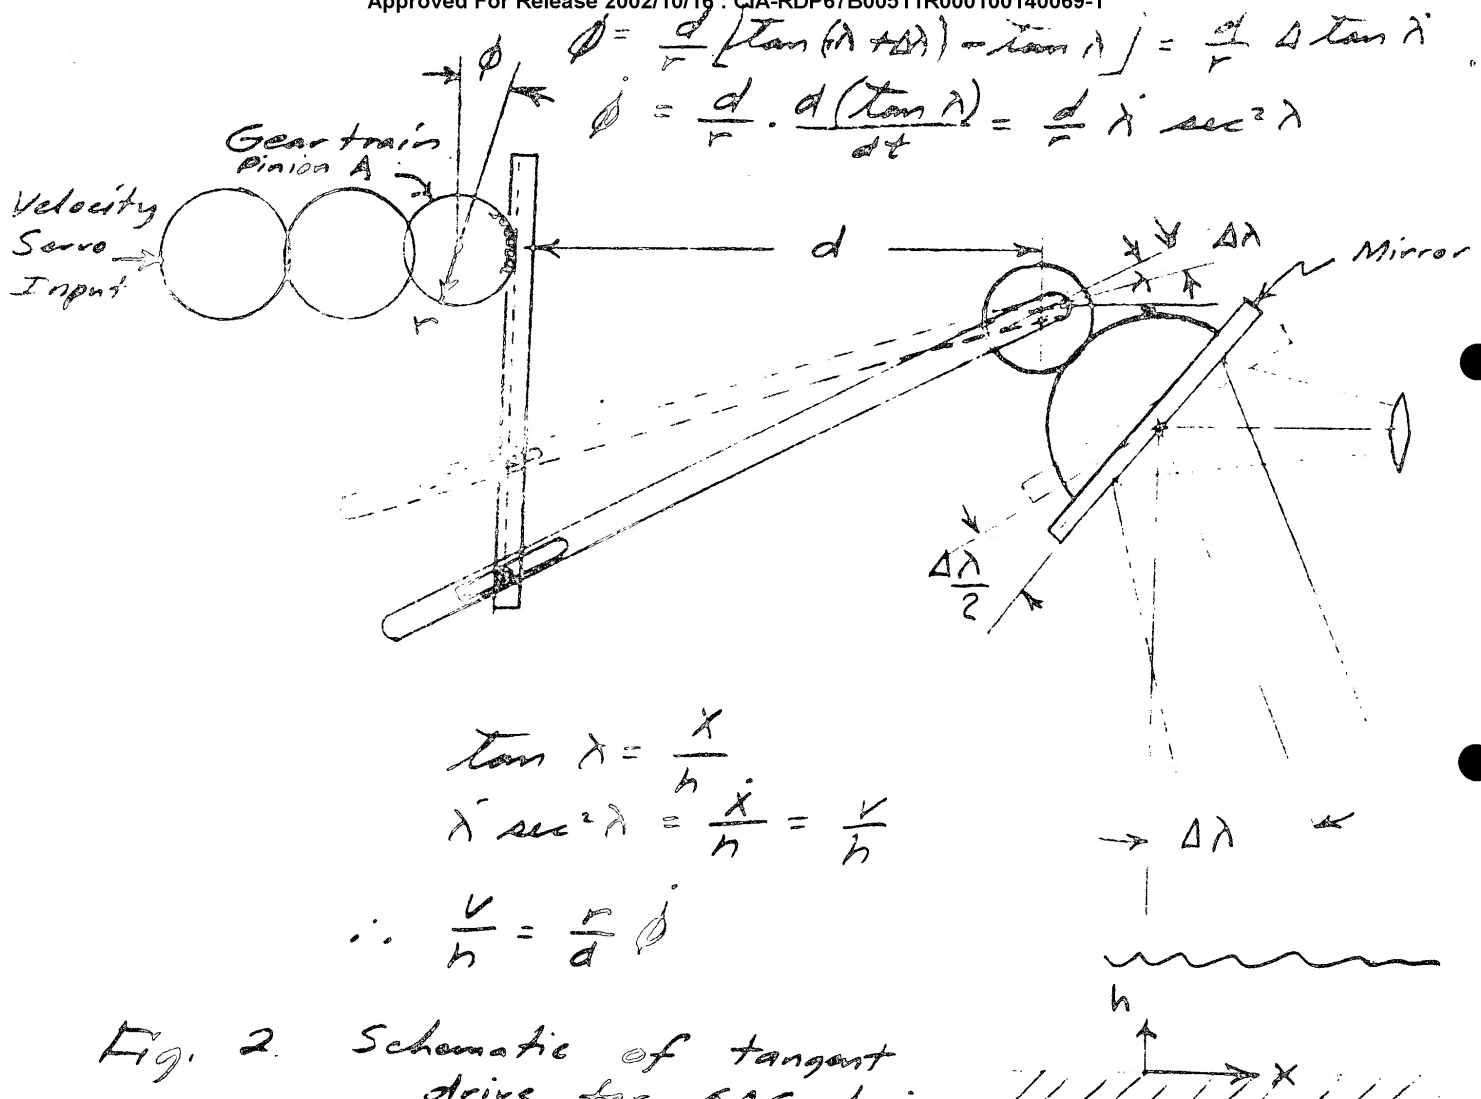 Approved For Release 2002/10/16 : CIA-RDP67B00511R000100140069-1
ϕ = d/r [tan (λ + Δλ) - tan λ] = d/r Δ tan λ
ϕ̇ = d/r · d(tan λ)/dt = d/r λ̇ sec² λ
ϕ
Gear train
Pinion A
Velocity
Servo
Input
r
d
Δλ
λ
Mirror
Δλ/2
tan λ = x/h
λ̇ sec² λ = ẋ/h = v/h
∴ v/h = r/d ϕ̇
Δλ
h
x
Fig. 2. Schematic of tangent
drive for